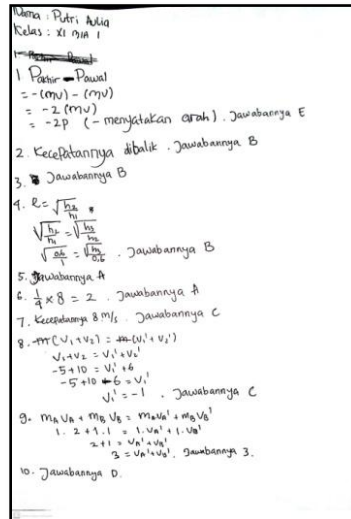 Nama : Putri Aulia
Kelas : XI MIA 1
1 Pakhir - Pawal
= -(mv) - (mv)
= -2 (mv)
= -2P (- menyatakan arah). Jawabannya E
2. Kecepatannya dibalik. Jawabannya B
3. Jawabannya B
4. e = √h₂/h₁
√h₂/h₁ = √h₃/h₂
√0,6/1 = √h₃/0,6 . Jawabannya B
5. Jawabannya A
6. 1/4 × 8 = 2 . Jawabannya A
7. Kecepatannya 8 m/s . Jawabannya C
8. m(V₁+V₂) = m(V₁'+V₂')
V₁+V₂ = V₁'+V₂'
-5+10 = V₁'+6
-5+10-6 = V₁'
V₁' = -1 . Jawabannya C
9. mA VA + mB VB = mA VA' + mB VB'
1. 2 + 1.1 = 1. VA' + 1. VB'
2+1 = VA' + VB'
3 = VA' + VB'. Jawabannya 3.
10. Jawabannya D.